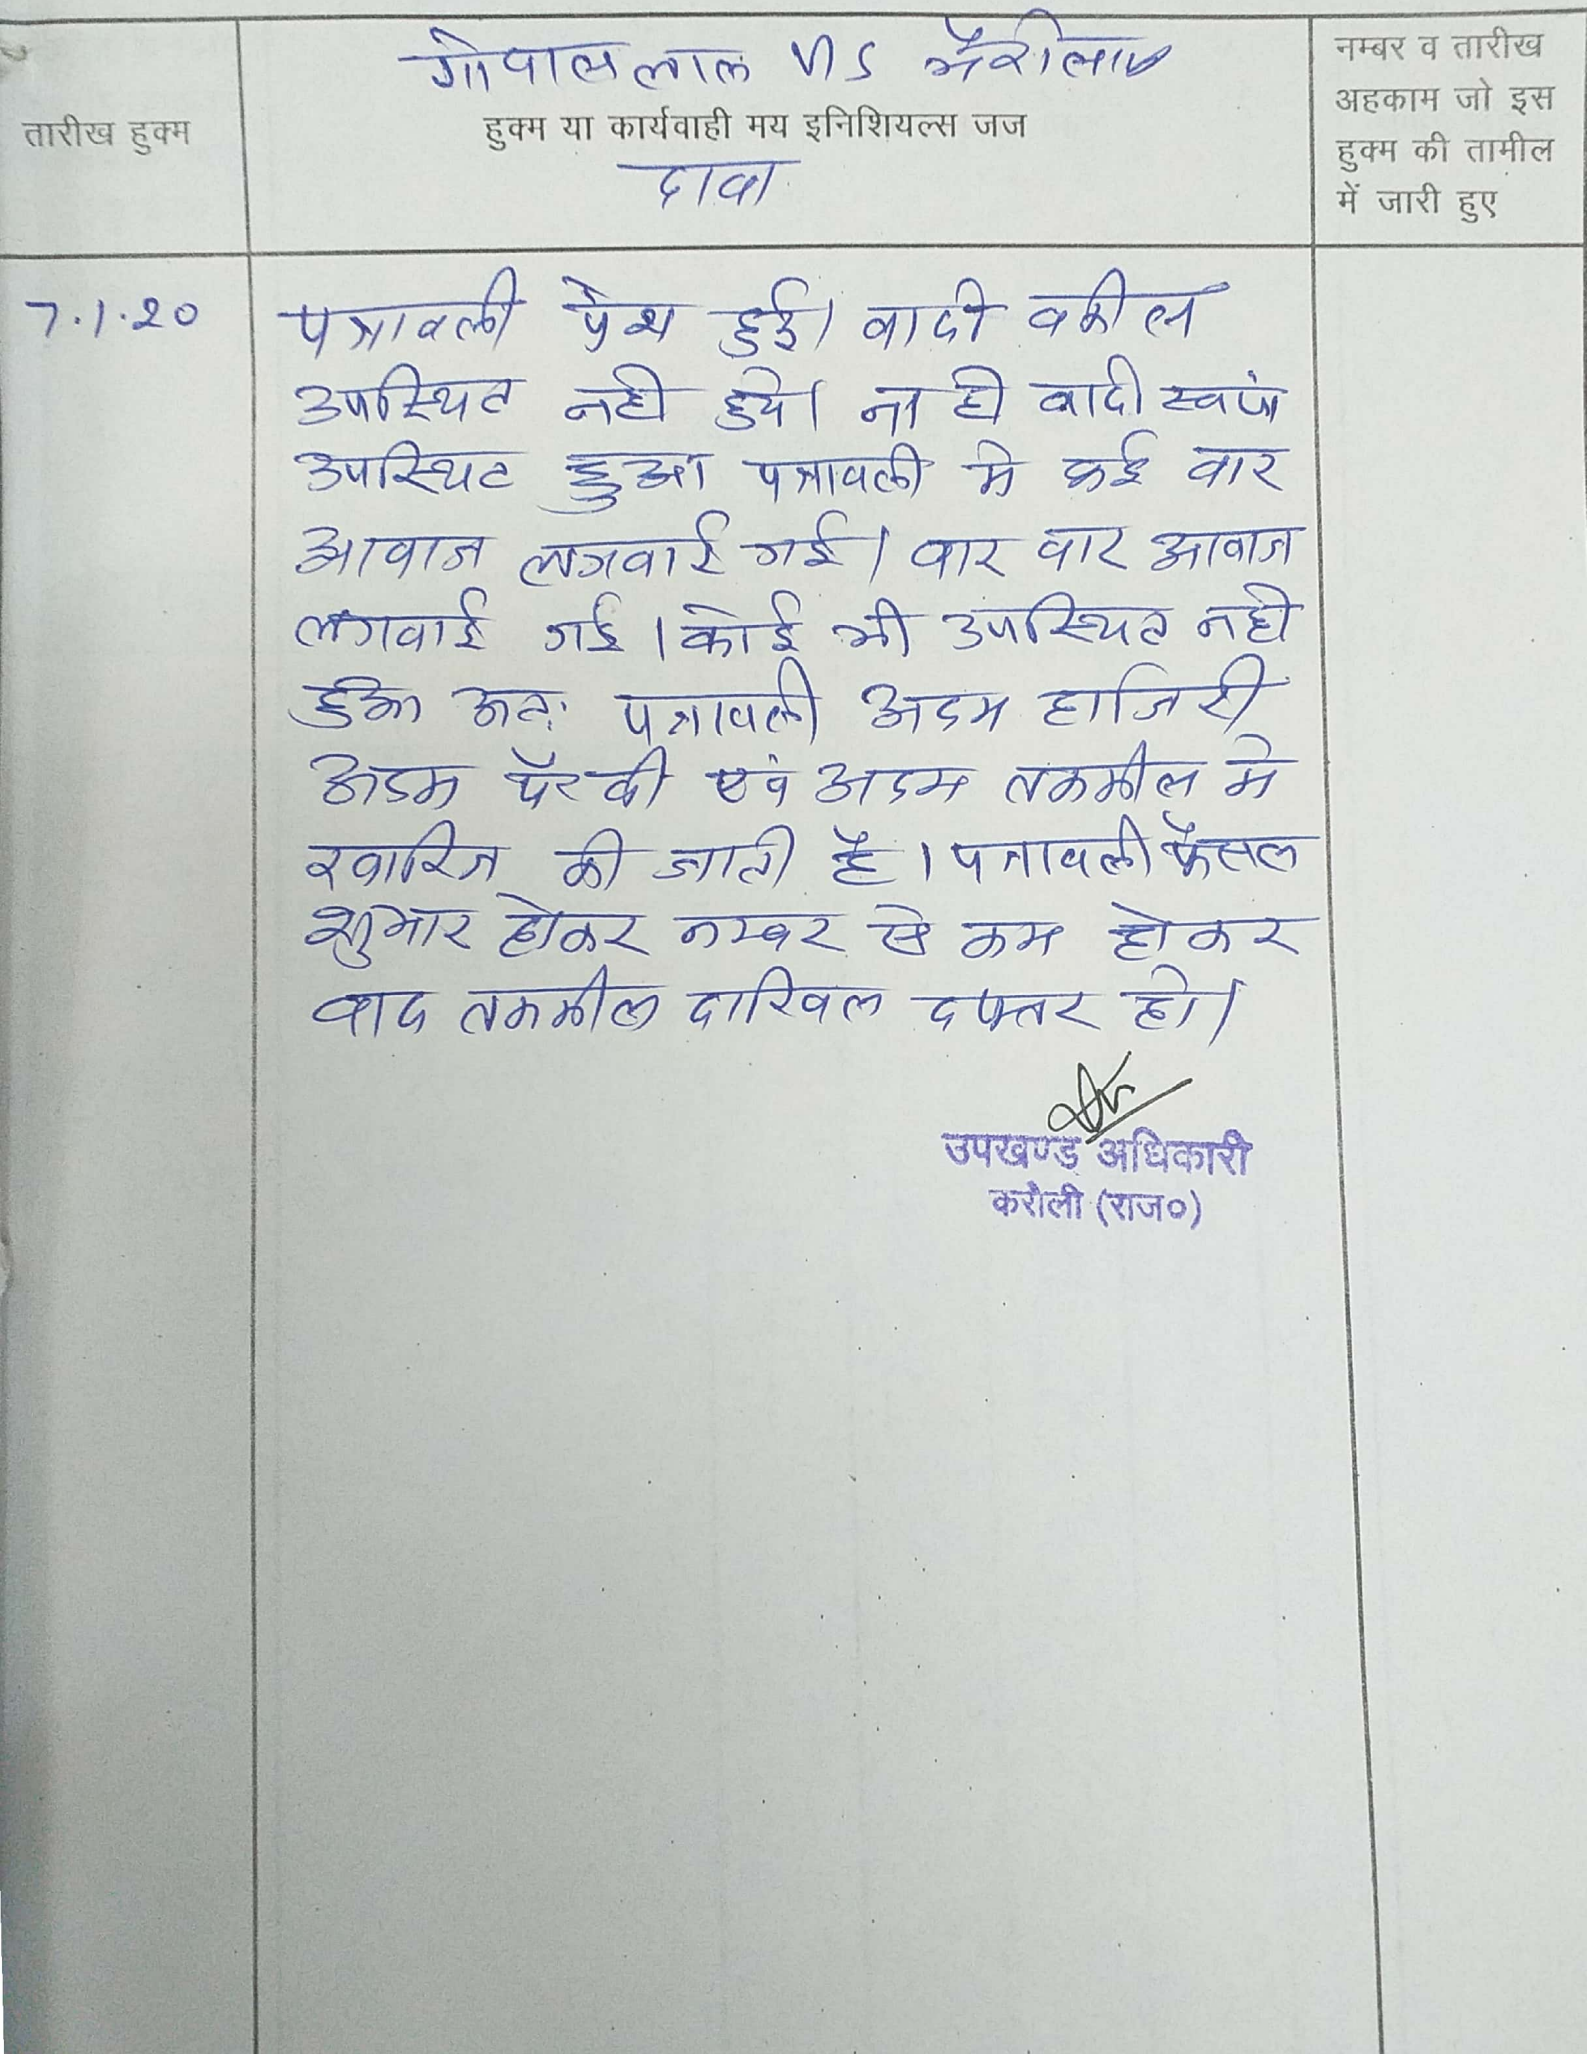 गोपाल लाल V/S भैरोलाल
तारीख हुक्म
हुक्म या कार्यवाही मय इनिशियल्स जज
दावा
नम्बर व तारीख
अहकाम जो इस
हुक्म की तामील
में जारी हुए
7.1.20
पत्रावली पेश हुई। वादी वकील
उपस्थित नही हुये। ना ही वादी स्वयं
उपस्थित हुआ पत्रावली मे कई वार
आवाज लगवाई गई। वार वार आवाज
लगवाई गई। कोई भी उपस्थित नही
हुआ अतः पत्रावली अदम हाजिरी
अदम पैरवी एवं अदम तकमील मे
खारिज की जाती है। पत्रावली फैसल
शुमार होकर नम्बर से कम होकर
वाद तकमील दाखिल दफ्तर हो।
उपखण्ड अधिकारी
करौली (राज०)